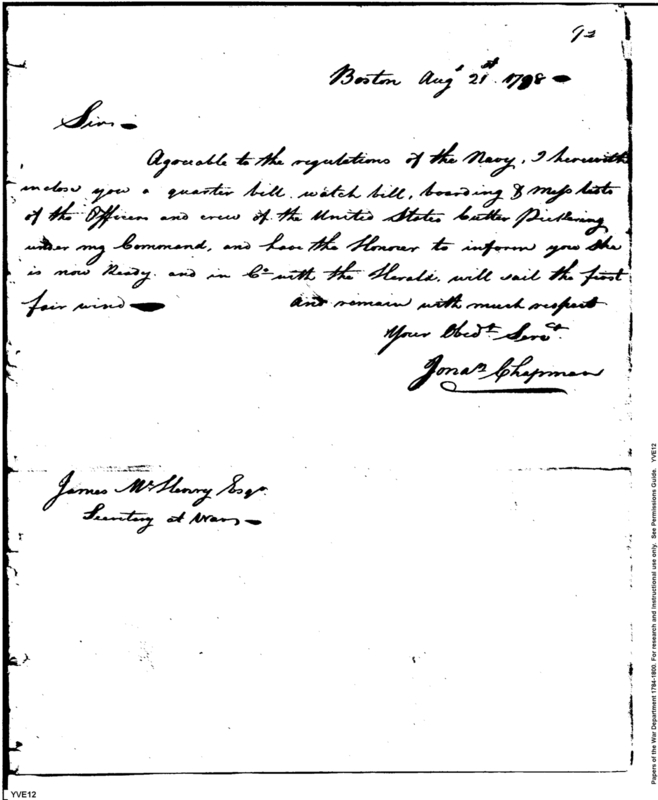 92
Boston Augt 21st 1798
Sir
Agreeable to the regulations of the Navy, I herewith
inclose you a quarter bill watch bill, boarding & Mess lists
of the Officers and crew of the United States Cutter Pickering
under my Command, and have the Honour to inform you she
is now Ready and in Co with the Herald, will sail the first
fair wind And remain with much respect
Your Obedt Servt
Jonan Chapman
James McHenry Esqr
Secretary at War
YVE12
Papers of the War Department 1784-1800. For research and instructional use only. See Permissions Guide. YVE12